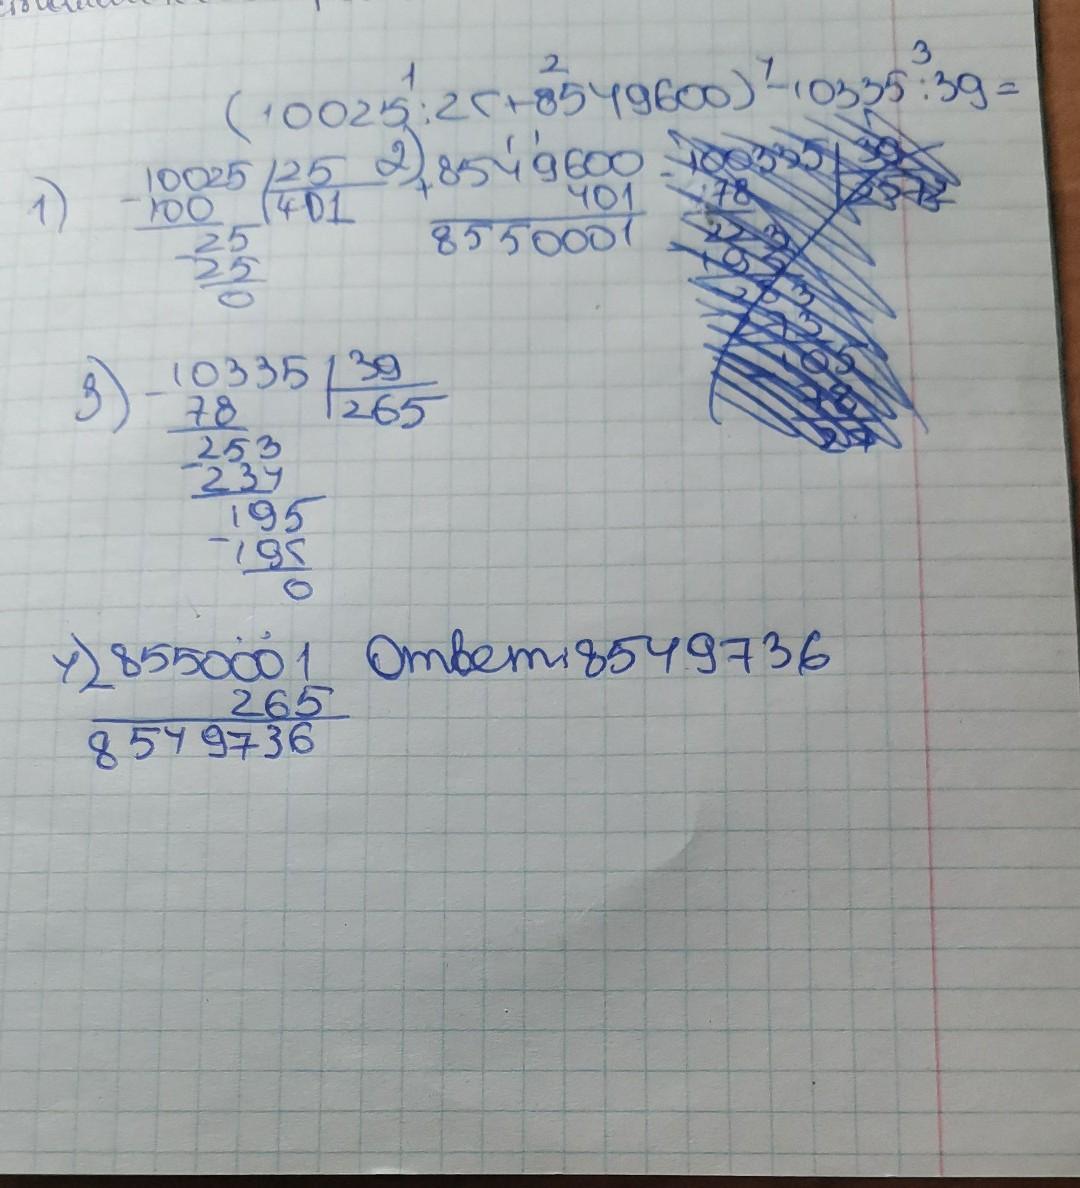 (10025:25+8549600)-10335:39=
1 2 4 3
1) 10025 | 25
- 100 | 401
25
- 25
0
2) 8549600
+ 401
8550001
3) - 10335 | 39
78 | 265
253
- 234
195
- 195
0
4) 8550001
265
8549736
Ответ: 8549736